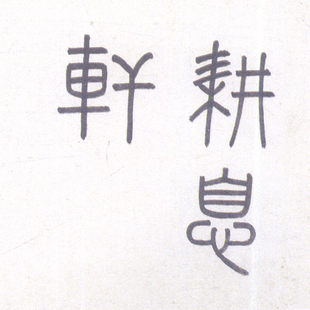 耕息
軒